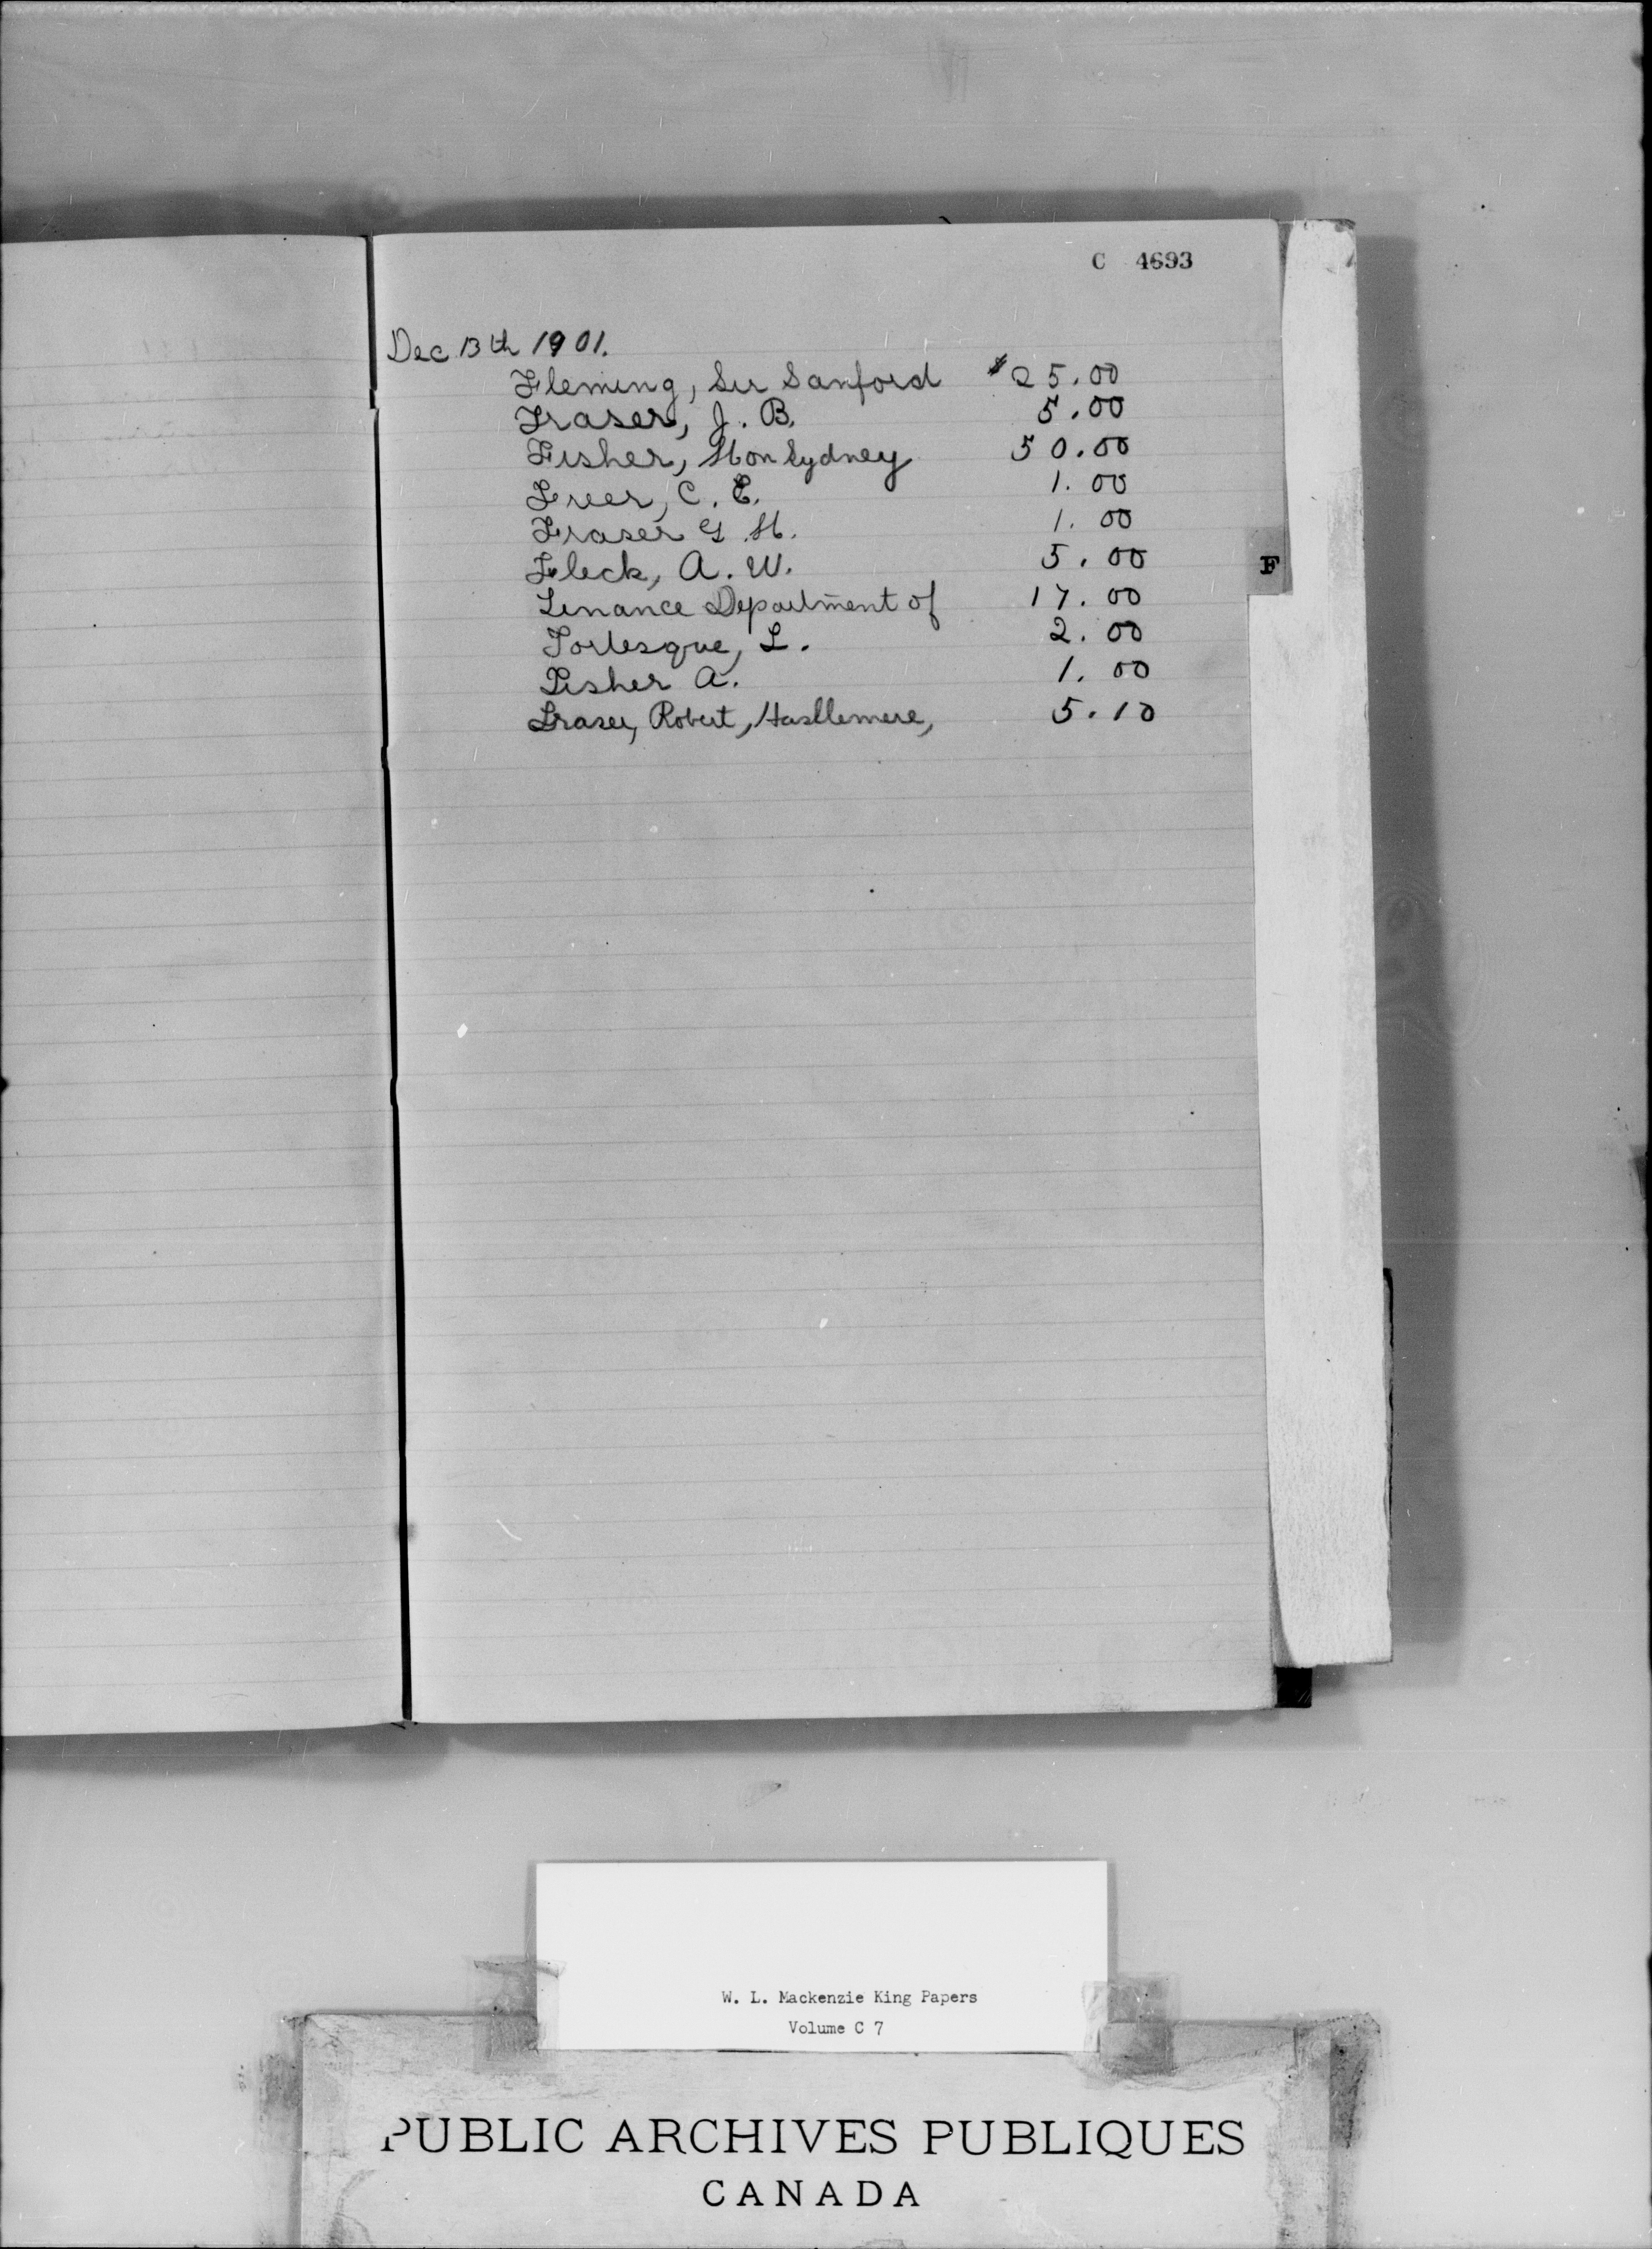 C 4693
Dec 13th 1901.
Fleming, Sir Sanford $25.00
Fraser, J. B. 5.00
Fisher, Hon Sydney 50.00
Freer, C. E. 1.00
Fraser G. H. 1.00
Fleck, A. W. 5.00
F
Finance Department of 17.00
Fortesque, L. 2.00
Fisher A. 1.00
Fraser, Robert, Hasllemere, 5.10
W. L. Mackenzie King Papers
Volume C 7
PUBLIC ARCHIVES PUBLIQUES
CANADA